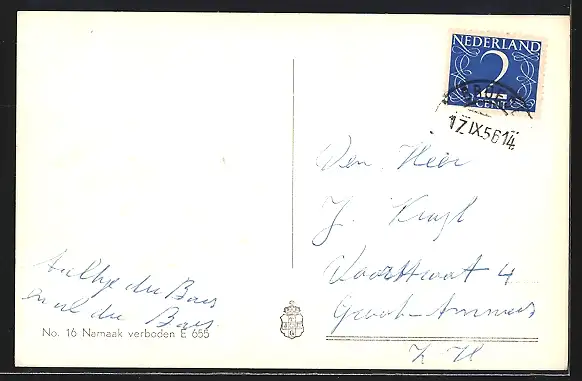 NEDERLAND
2
CENT
17.IX.56 14
Den Heer
J.
Voorstraat 4
Groot-Ammers
Z H
den Baas
den Baas
No. 16 Namaak verboden E 655